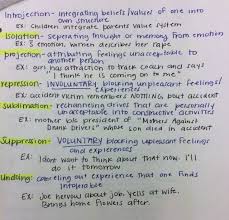 Introjection- integrating beliefs/values of one into
own structure
Ex: children integrate parents value system
isolation- seperating thought or memory from emotion
Ex: s emotion, women describe her rape
projection- attributing feelings unacceptable to
another person
Ex: girl has attraction to track coach and says
"I think he is coming on to me"
repression- INVOLUNTARY blocking unpleasant feelings/
experiences
Ex: accident victim remembers NOTHING about accident
sublimation- rechanneling drives that are personally
unacceptable into constructive activities
Ex: mother was president of "Mothers Against
Drunk Drivers" whose son died in accident
Suppression- VOLUNTARY blocking unpleasant feelings
and experiences
Ex: I dont want to think about that now. I'll
do it tomorrow
Undoing- canceling out experience that one finds
intolerable
Ex: Joe nervous about job yells at wife.
Brings home flowers after.